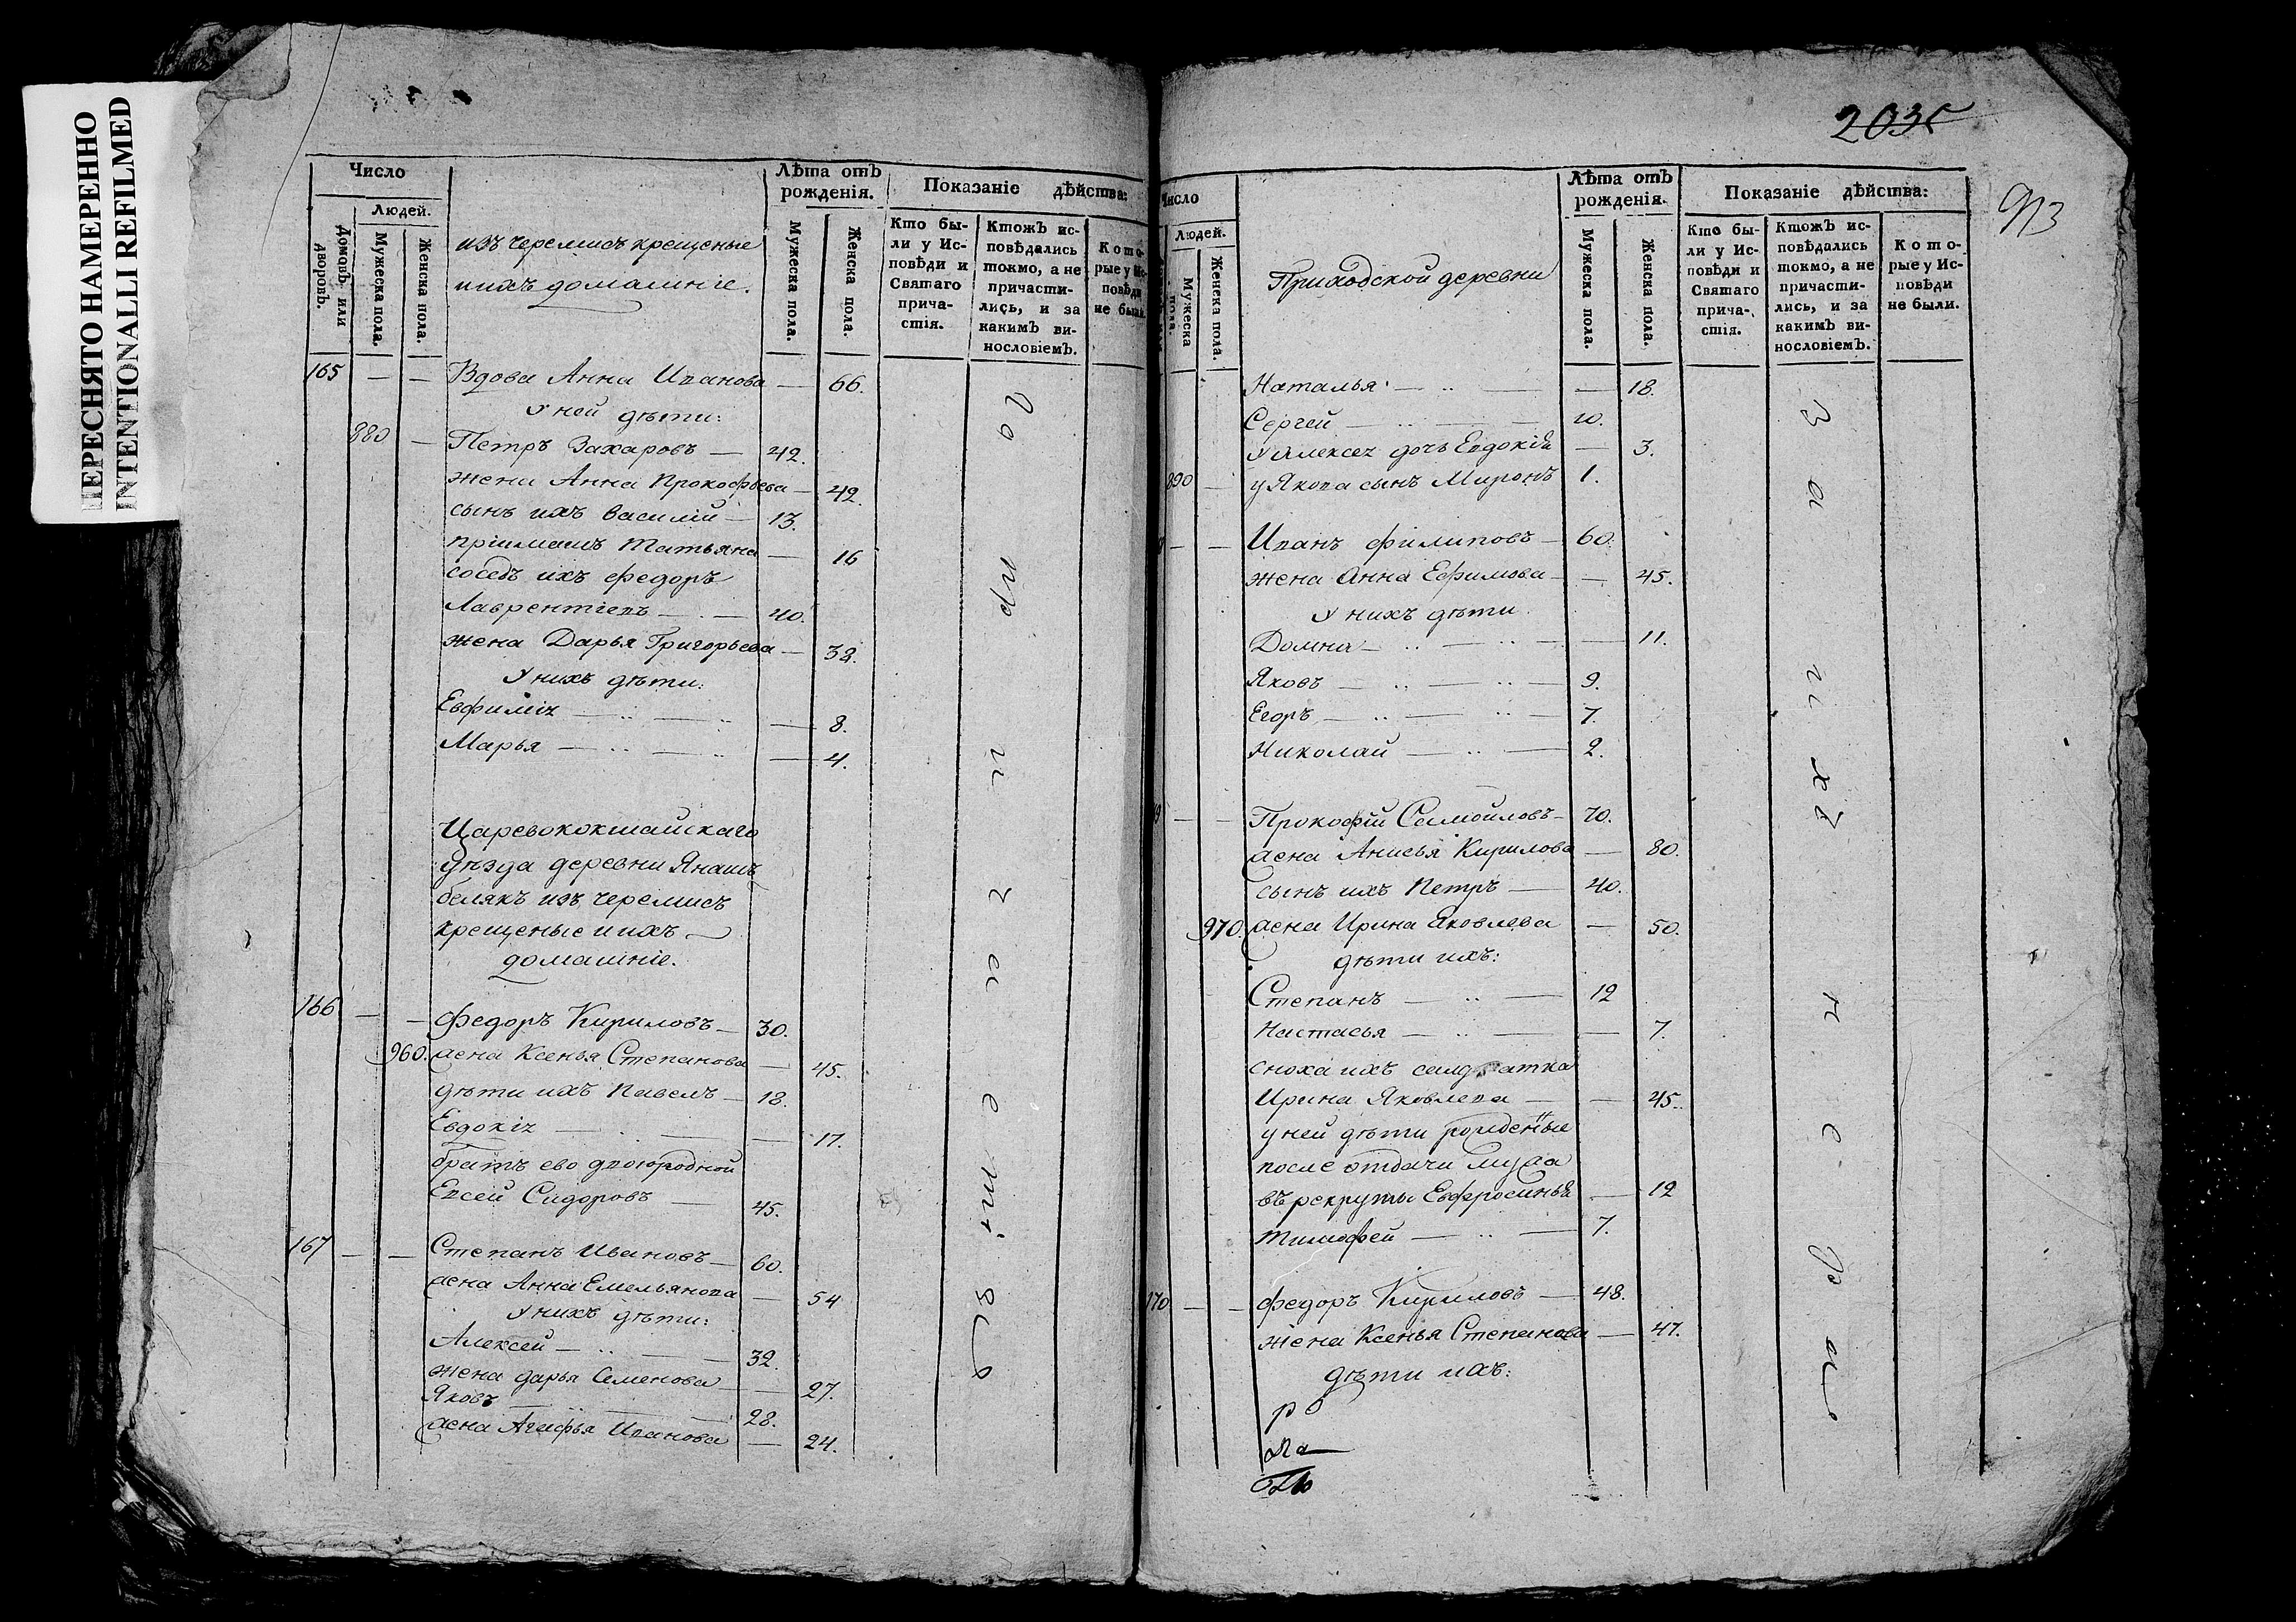 ПЕРЕСНЯТО НАМЕРЕННО
INTENTIONALLI REFILMED
Число
Людей.
Домовъ или дворовъ.
Мужеска пола.
Женска пола.
изъ черемисъ крещеные
и ихъ домашніе.
Лѣта отъ рожденія.
Мужеска пола.
Женска пола.
Показаніе дѣйства:
Кто были у Исповѣди и Святаго причастія.
Ктожъ исповѣдались токмо, а не причастились, и за какимъ винословіемъ.
Которые у Исповѣди не были.
165 — — Вдова Анна Иванова — 66.
У ней дѣти:
880 — Петръ Захаровъ — 42.
жена Анна Прокофьева — 42.
сынъ ихъ Василій — 13.
пріимашъ Татьяна — 16
соседъ ихъ Федоръ
Лаврентіевъ — 40.
жена Дарья Григорьева — 38.
У нихъ дѣти:
Евфимія — 8.
Марья — 4.
Царевококшайскаго
уѣзда деревни Янашъ
белякъ изъ черемисъ
крещеные и ихъ —
домашніе.
166 — — Федоръ Кириловъ — 30.
960. жена Ксенья Степанова — 45.
дѣти ихъ Павелъ — 18.
Евдокія — 17.
братъ ево двоюродной
Евсей Сидоровъ — 45.
167 — — Степанъ Ивановъ — 60.
жена Анна Емельянова — 54
У нихъ дѣти:
Алексей — 32.
жена дарья Семенова — 27.
Яковъ — 28.
жена Агафья Иванова — 24.
203
913
Число
Людей.
Мужеска пола.
Женска пола.
Приходской деревни
Лѣта отъ рожденія.
Мужеска пола.
Женска пола.
Показаніе дѣйства:
Кто были у Исповѣди и Святаго причастія.
Ктожъ исповѣдались токмо, а не причастились, и за какимъ винословіемъ.
Которые у Исповѣди не были.
Наталья — 18.
Сергей — 10.
у Алексея дочь Евдокія — 3.
890 — у Якова сынъ Миронъ 1.
— — Иванъ Филиповъ — 60.
жена Анна Ефимова — 45.
У нихъ дѣти
Домна — 11.
Яковъ — 9.
Егоръ — 7.
Николай — 2.
9 — — Прокофій Самойловъ — 70.
жена Анисья Кирилова — 80.
сынъ ихъ Петръ — 40.
970. жена Ирина Яковлева — 50.
дѣти ихъ:
Степанъ — 12
Настасья — 7.
сноха ихъ салдатка
Ирина Яковлева — 45.
у ней дѣти рожденные
после отдачи мужа
въ рекруты Евфросинья — 12
Тимофей — 7.
170 — — Федоръ Кириловъ — 48.
жена Ксенья Степанова — 47.
дѣти ихъ: